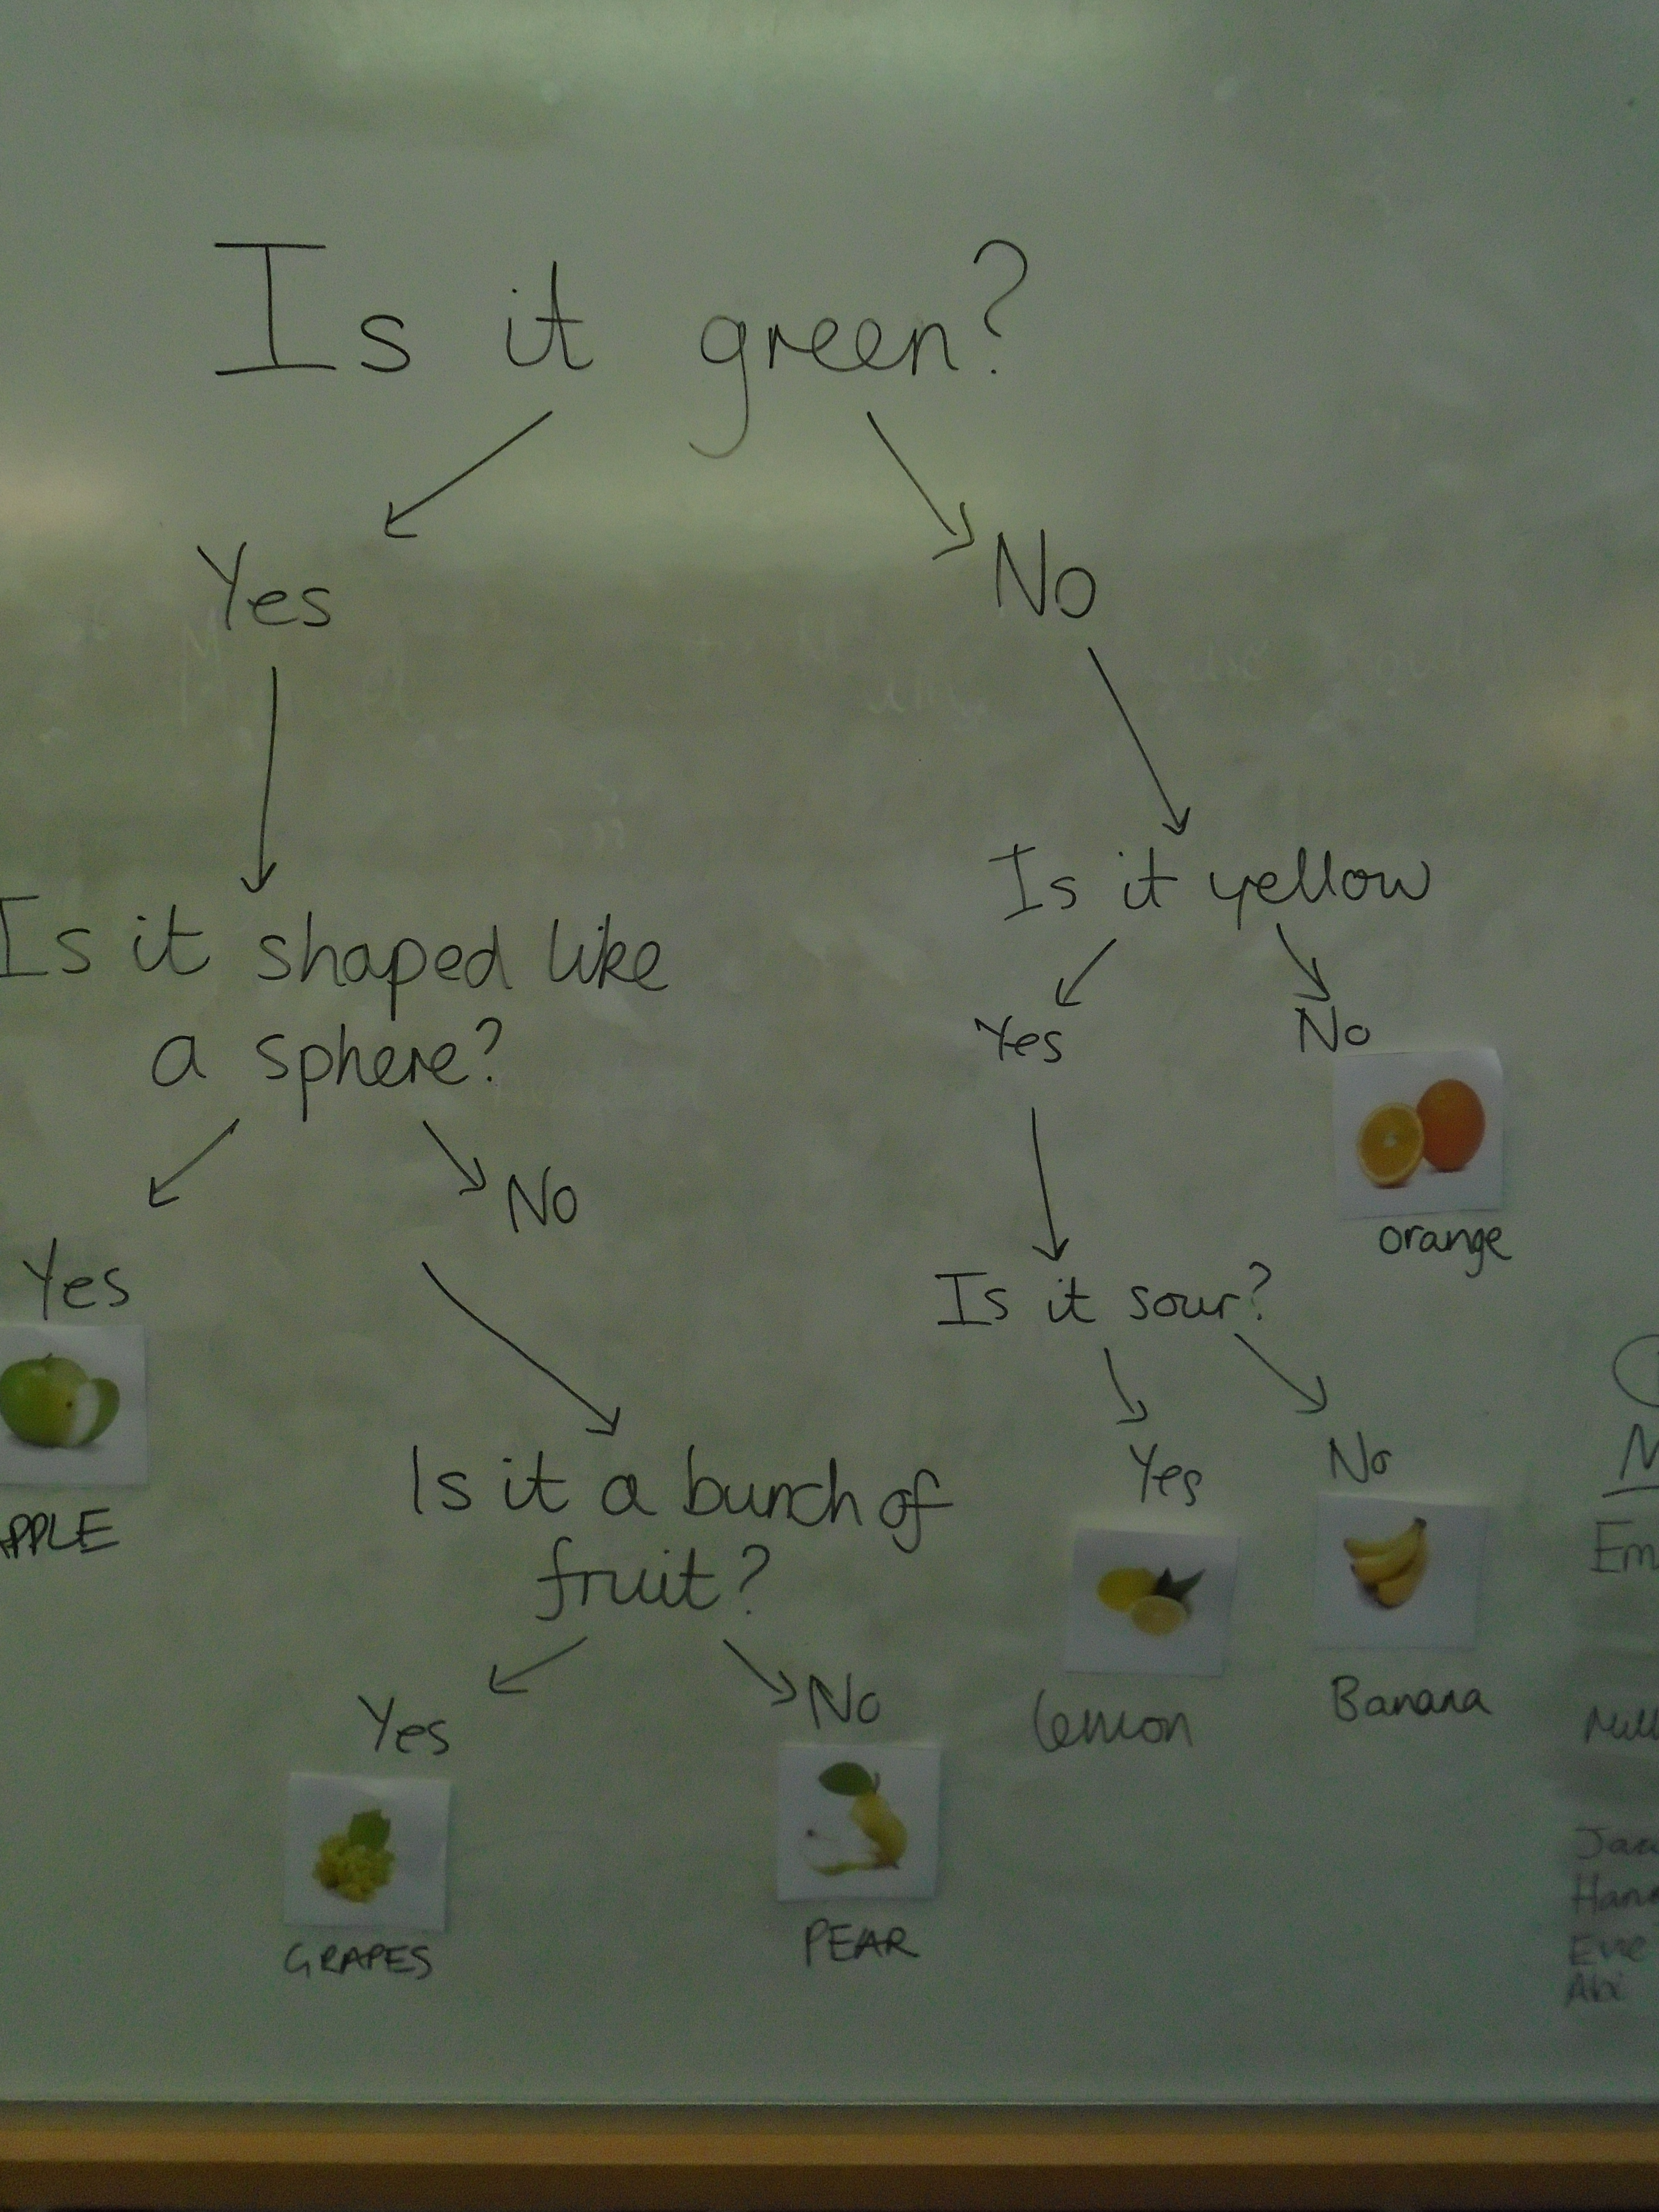 Is it green?
Yes
No
Is it yellow
Is it shaped like
a sphere?
Yes
No
No
Yes
orange
Is it sour?
Yes
No
Is it a bunch of
fruit?
Yes
No
PPLE
lemon
Banana
Yes
No
GRAPES
PEAR
Em
Han
Eve